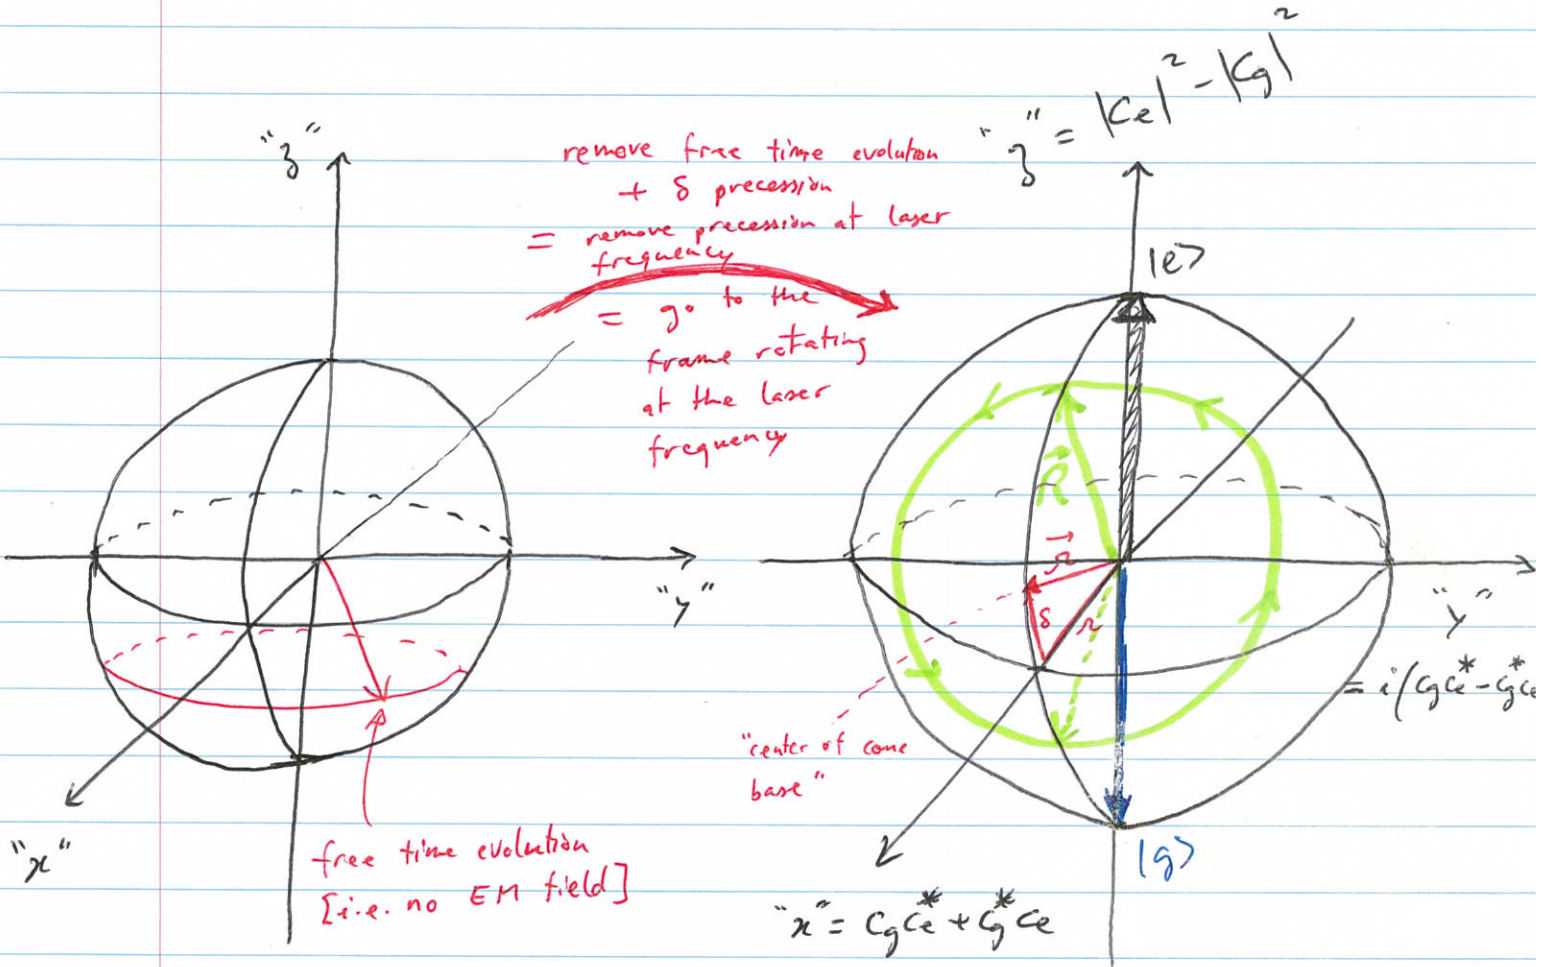 "z"
"y"
"x"
free time evolution
[i.e. no EM field]
remove free time evolution
+ δ precession
= remove precession at laser
frequency
= go to the
frame rotating
at the laser
frequency
"z" = |Ce|² - |Cg|²
|e⟩
R⃗
Ω⃗
δ
Ω
"center of cone
base"
"y"
= i(CgCe* - Cg*Ce
|g⟩
"x" = CgCe* + Cg*Ce